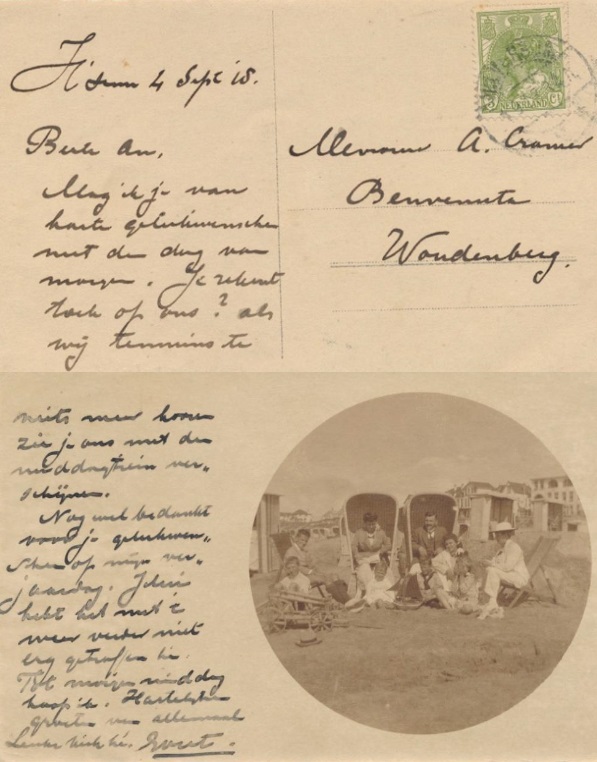 H'sum 4 Sept 18.
Beste An,
Mag ik je van
harte gelukwenschen
met de dag van
morgen. Je rekent
toch op ons? als
wij tenminste
Mevrouw A. Cramer
Benvenuta
Woudenberg.
NEDERLAND
niets meer hooren
zie je ons met den
middagtrein ver-
schijnen.
Nog wel bedankt
voor je gelukwen-
schen op mijn ver-
jaardag. Jelui
hebt het met 't
weer verder niet
erg getroffen hè.
Tot morgen middag
hoop ik. Hartelijke
groeten van allemaal
Leuke kiek hè.